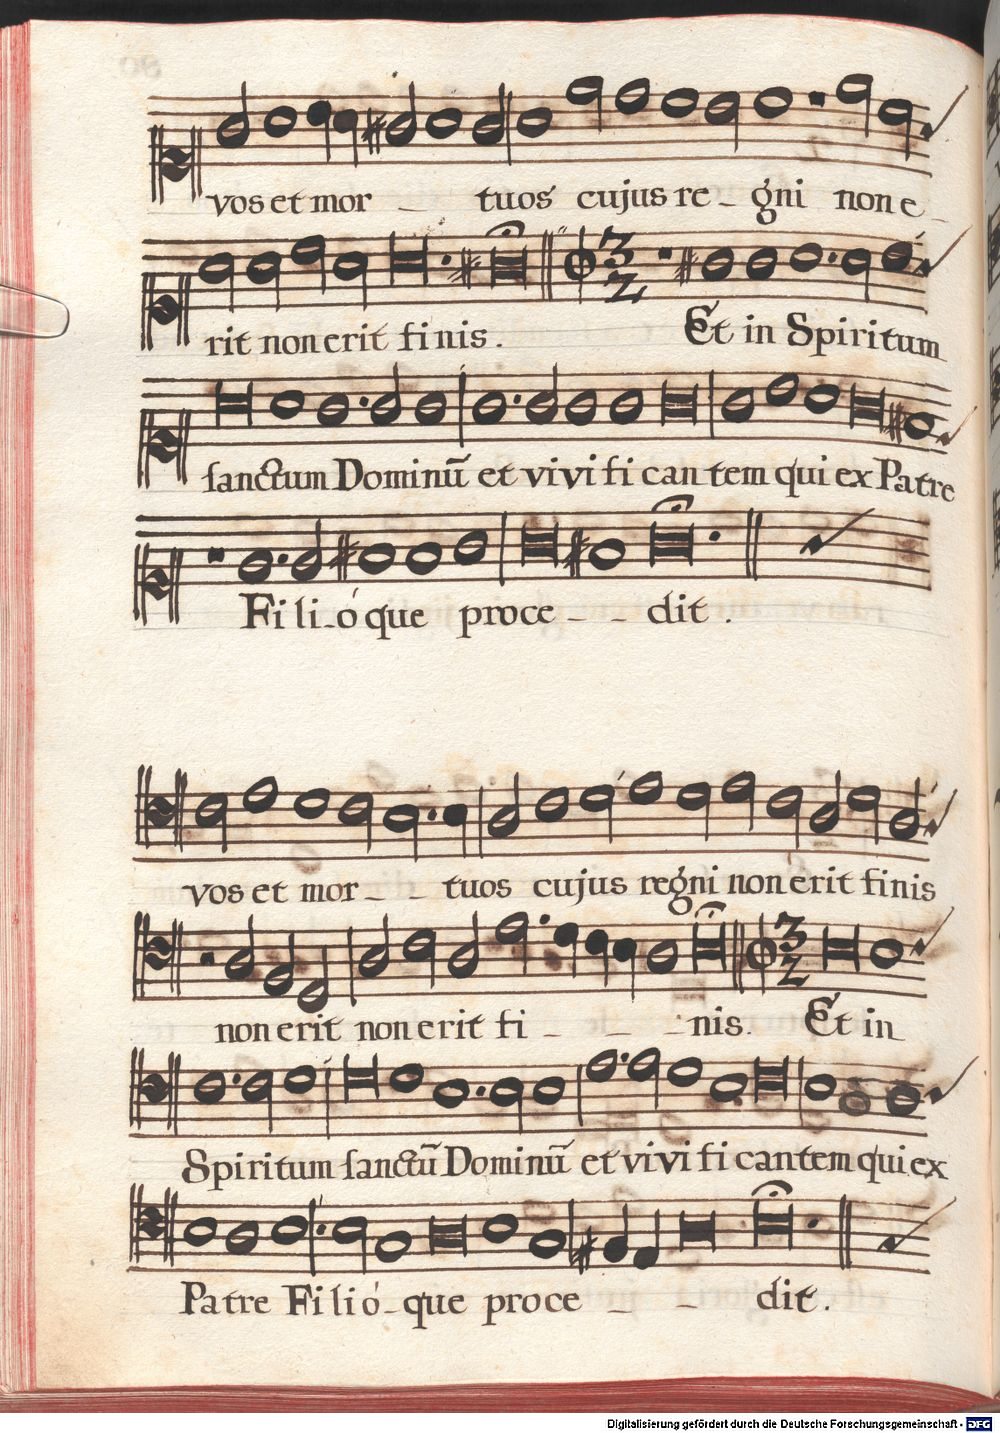 vos et mor - tuos cujus re - gni non e -
rit non erit finis. Et in Spiritum
sanctum Dominū et vivificantem qui ex Patre
Filióque proce - - dit.
vos et mor - - tuos cujus regni non erit finis
non erit non erit fi - - - nis. Et in
Spiritum sanctū Dominū et vivificantem qui ex
Patre Filió-que proce - - dit.
Digitalisierung gefördert durch die Deutsche Forschungsgemeinschaft - DFG